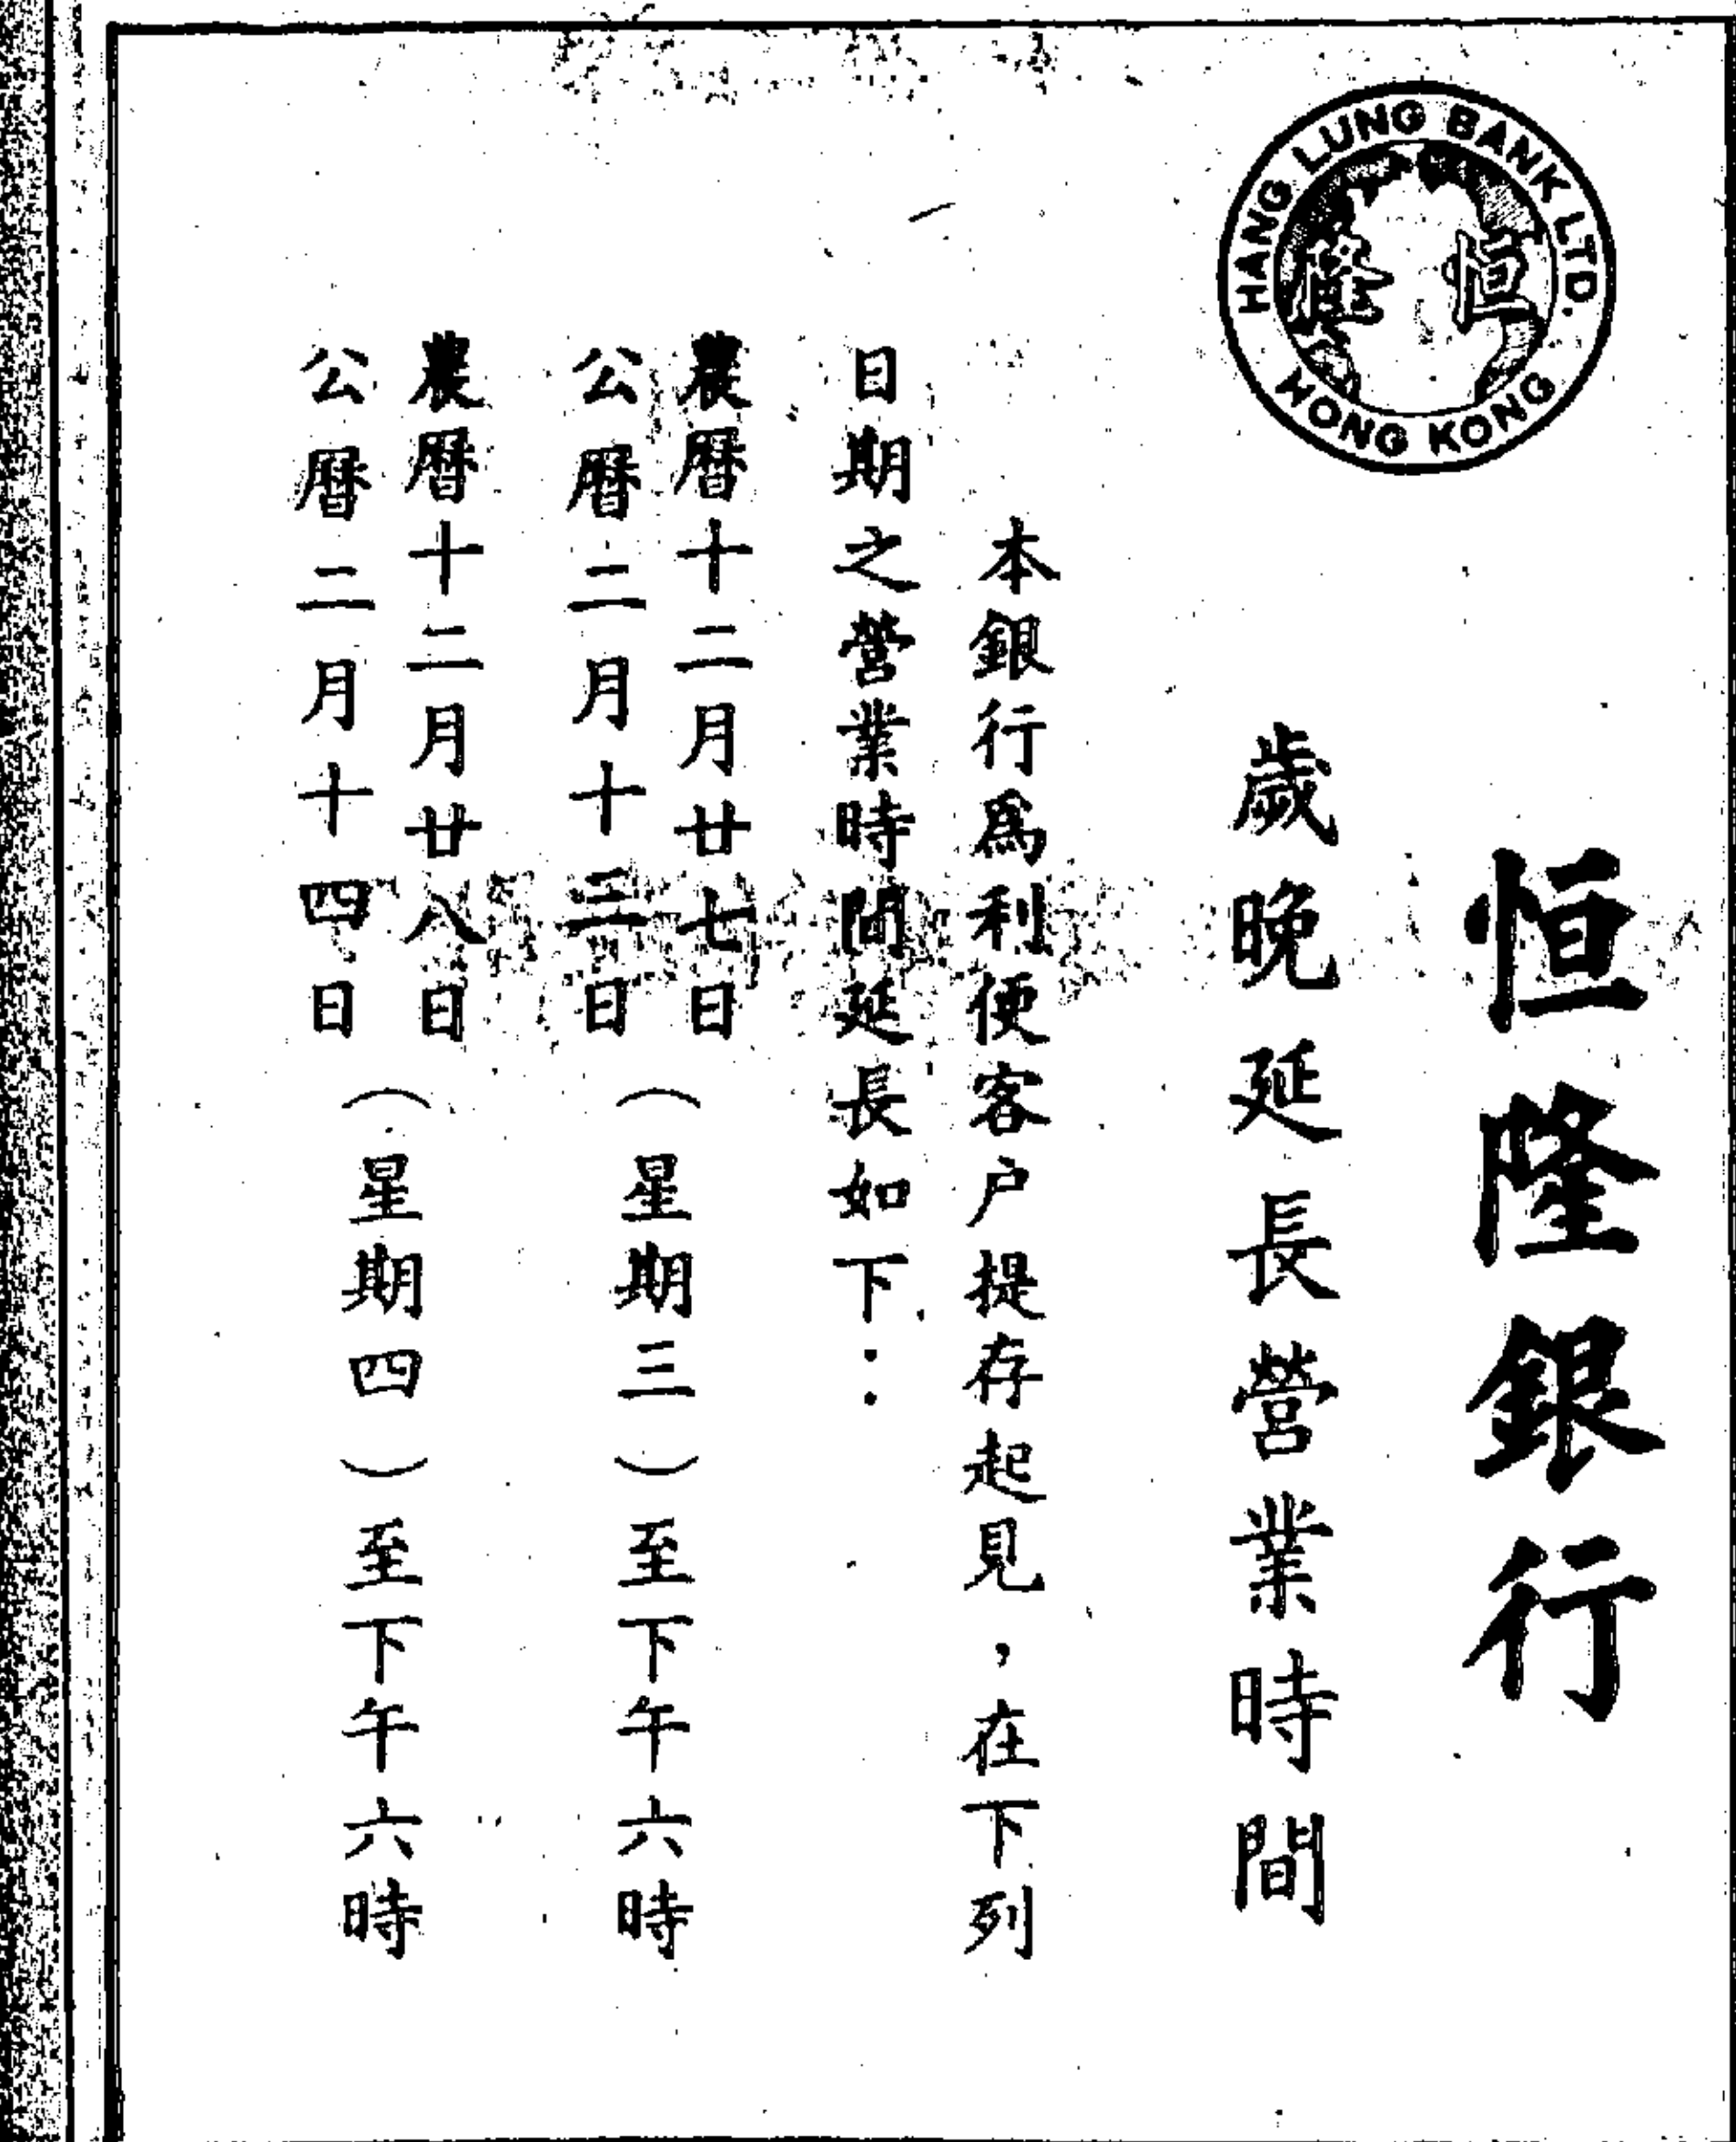 恒隆銀行
HANG LUNG BANK LTD.
恒隆
HONG KONG
歲晚延長營業時間
本銀行爲利便客户提存起見，在下列
日期之營業時間延長如下：
農曆十二月廿七日
公曆二月十三日
（星期三）至下午六時
農曆十二月廿八日
公曆二月十四日
（星期四）至下午六時